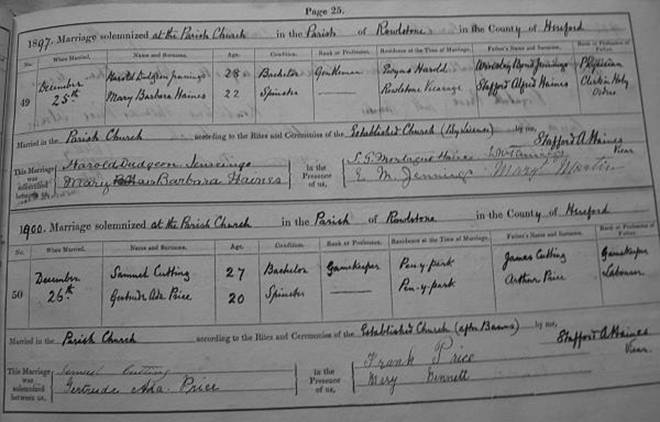 Page 25.
1897. Marriage solemnized at the Parish Church in the Parish of Rowlstone in the County of Hereford
No. When Married. Name and Surname. Age. Condition. Rank or Profession. Residence at the Time of Marriage. Father's Name and Surname. Rank or Profession of Father.
49 December 25th Harold Dudgeon Jennings 28 Bachelor Gentleman Ewyas Harold Jennings Physician
Mary Barbara Haines 22 Spinster Rowlstone Vicarage Stafford Alfred Haines Clerk in Holy Orders
Married in the Parish Church according to the Rites and Ceremonies of the Established Church (by Licence) by me,
Stafford A Haines
Vicar
This Marriage was solemnized between us, Harold Dudgeon Jennings
Mary Barbara Haines
In the Presence of us, Montague Haines
E. M. Jennings Mary Martin
1900. Marriage solemnized at the Parish Church in the Parish of Rowlstone in the County of Hereford
No. When Married. Name and Surname. Age. Condition. Rank or Profession. Residence at the Time of Marriage. Father's Name and Surname. Rank or Profession of Father.
50 December 26th Samuel Cutting 27 Bachelor Gamekeeper Pen-y-park James Cutting Gamekeeper
Gertrude Ada Price 20 Spinster Pen-y-park Arthur Price Labourer
Married in the Parish Church according to the Rites and Ceremonies of the Established Church (after Banns) by me,
Stafford A Haines
Vicar.
This Marriage was solemnized between us, Samuel Cutting
Gertrude Ada Price
In the Presence of us, Frank Price
Mary Bennett